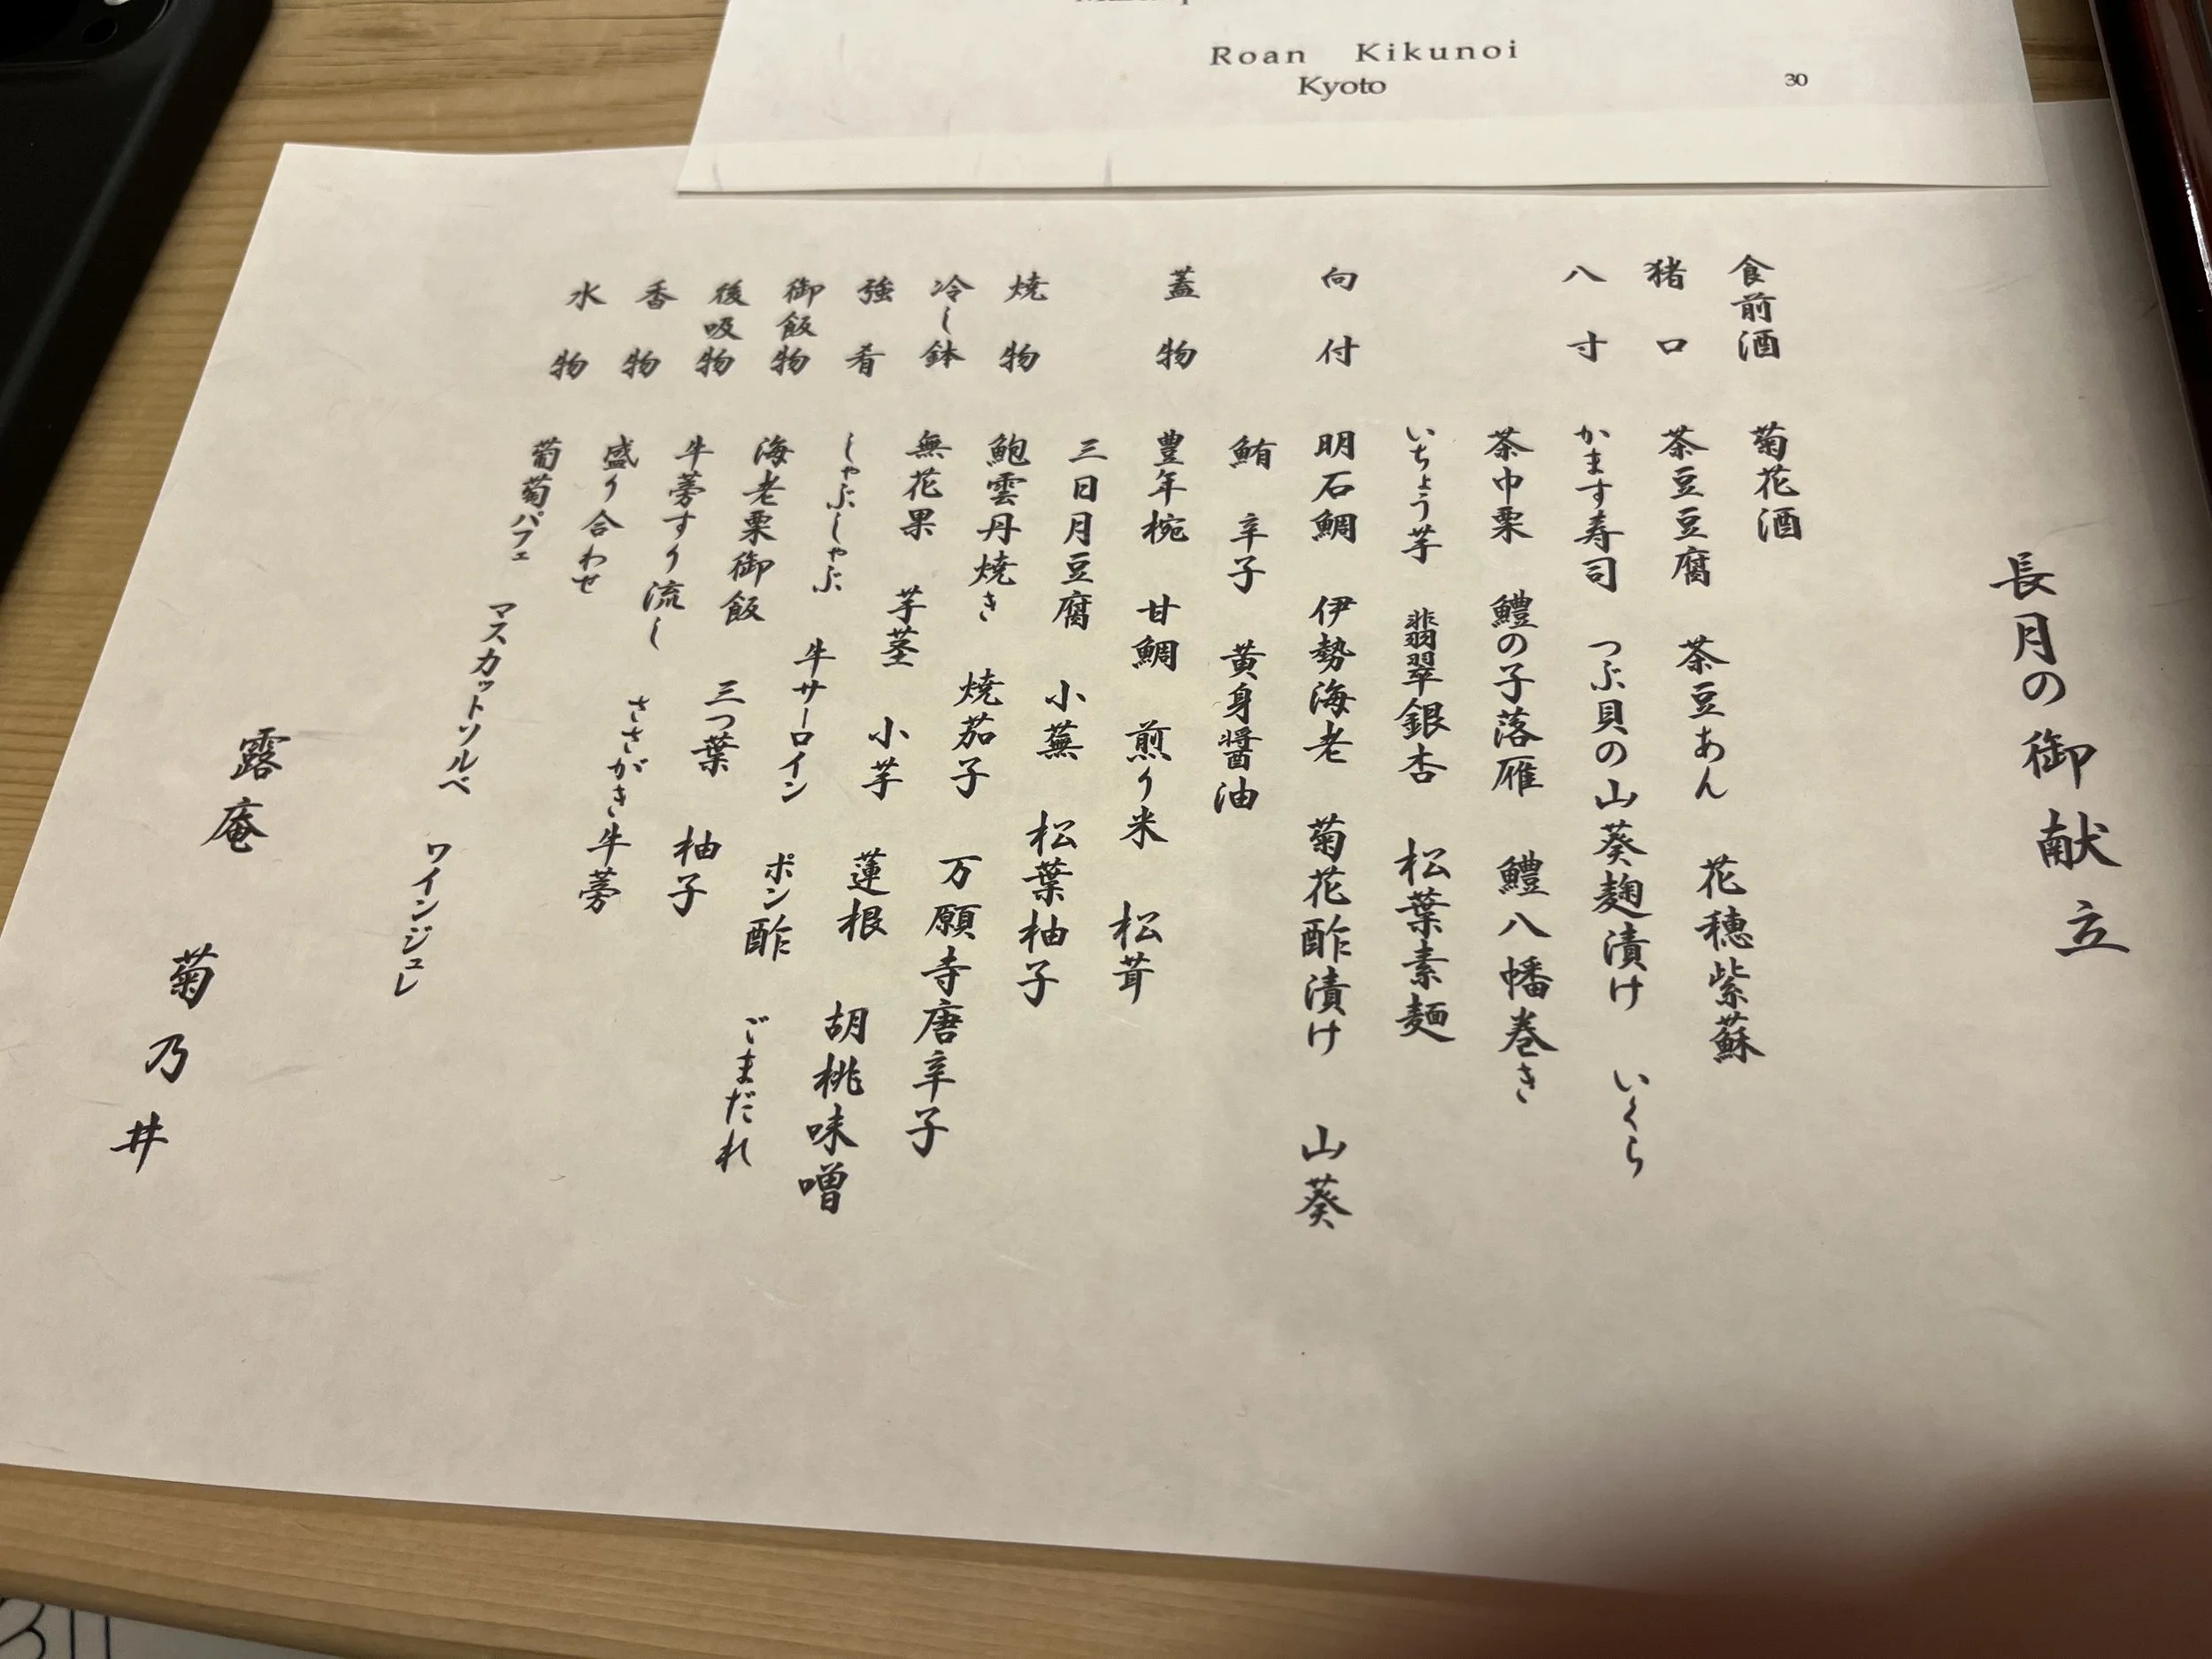 Roan Kikunoi
Kyoto
30
長月の御献立
食前酒 菊花酒
猪口 茶豆豆腐 茶豆あん 花穂紫蘇
八寸 かます寿司 つぶ貝の山葵麹漬け いくら
茶巾栗 鱧の子落雁 鱧八幡巻き
いちょう芋 翡翠銀杏 松葉素麺
向付 明石鯛 伊勢海老 菊花酢漬け 山葵
鮪 辛子 黄身醤油
蓋物 豊年椀 甘鯛 煎り米 松茸
三日月豆腐 小蕪 松葉柚子
焼物 鮑雲丹焼き 焼茄子 万願寺唐辛子
冷し鉢 無花果 芋茎 小芋 蓮根 胡桃味噌
強肴 しゃぶしゃぶ 牛サーロイン ポン酢 ごまだれ
御飯物 海老栗御飯 三つ葉 柚子
後吸物 牛蒡すり流し ささがき牛蒡
香物 盛り合わせ
水物 葡萄パフェ マスカットソルベ ワインジュレ
露庵 菊乃井